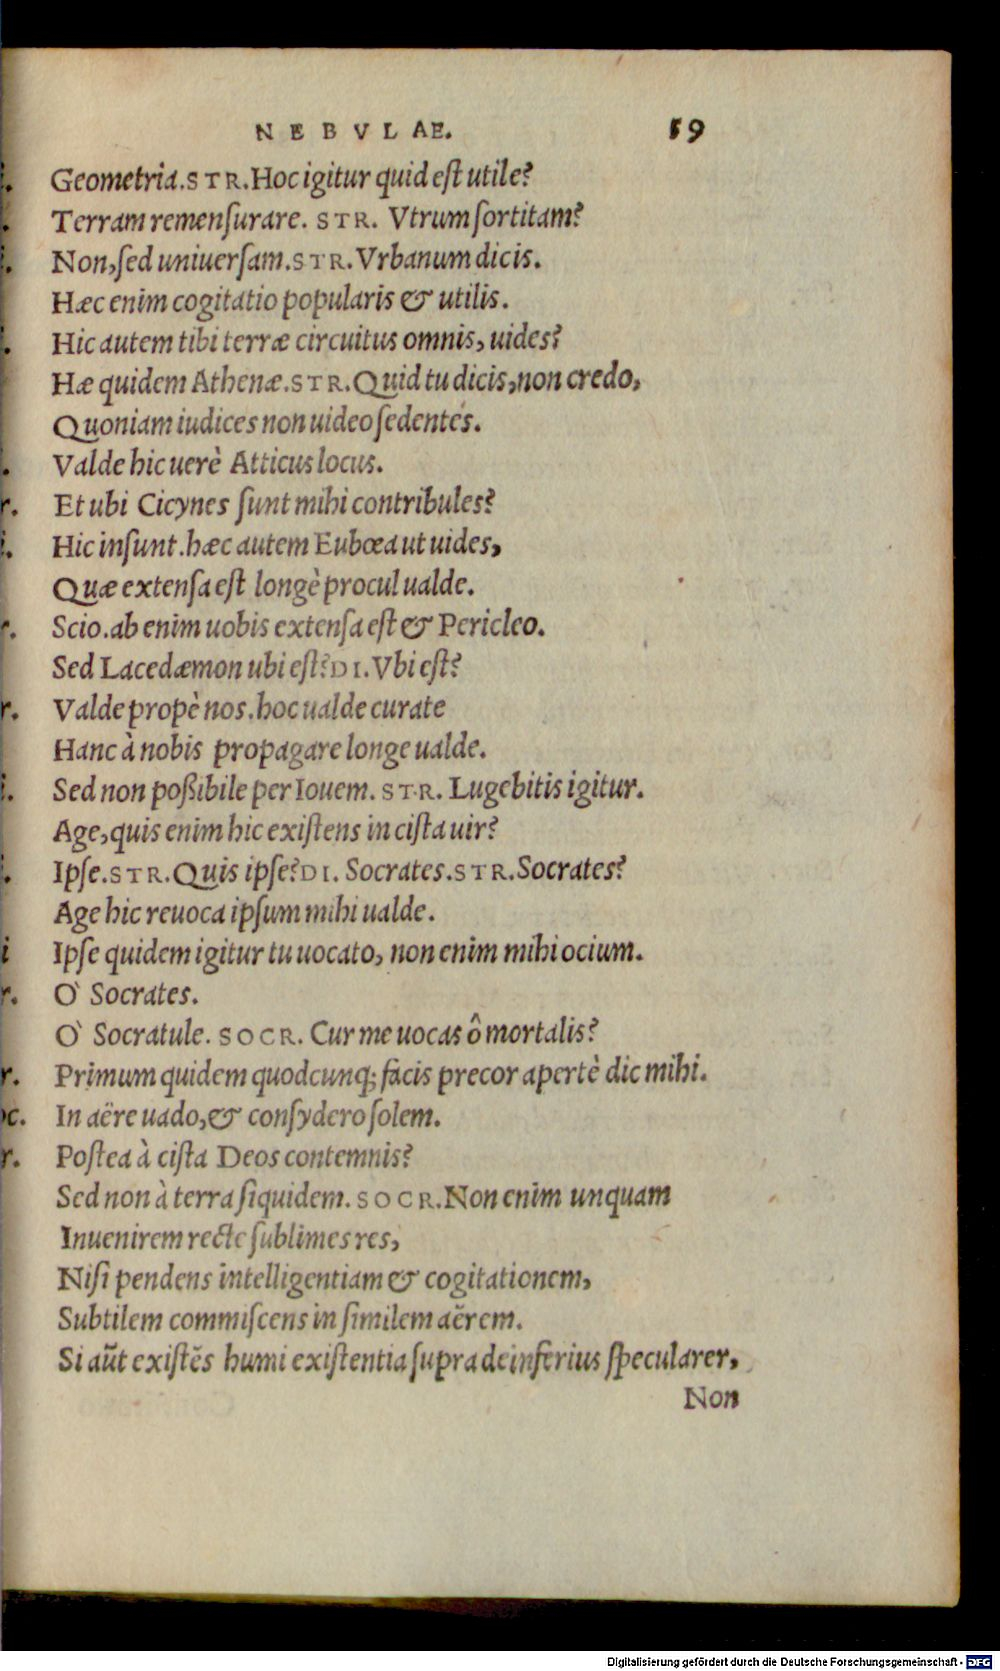 NEBVLAE. 59
i. Geometria.STR.Hoc igitur quid eſt utile?
. Terram remenſurare. STR. Vtrum ſortitam?
i. Non,ſed uniuerſam.STR.Vrbanum dicis.
Hæc enim cogitatio popularis & utilis.
. Hic autem tibi terræ circuitus omnis, uides?
Hæ quidem Athenæ.STR.Quid tu dicis,non credo,
Quoniam iudices non uideo ſedentes.
. Valde hic uerè Atticus locus.
r. Et ubi Cicynes ſunt mihi contribules?
i. Hic inſunt.hæc autem Eubœa ut uides,
Quæ extenſa eſt longè procul ualde.
r. Scio.ab enim uobis extenſa eſt & Pericleo.
Sed Lacedæmon ubi eſt?DI.Vbi eſt?
r. Valde propè nos.hoc ualde curate
Hanc à nobis propagare longe ualde.
i. Sed non poßibile per Iouem. STR. Lugebitis igitur.
Age,quis enim hic exiſtens in ciſta uir?
. Ipſe.STR.Quis ipſe?DI. Socrates.STR.Socrates?
Age hic reuoca ipſum mihi ualde.
i Ipſe quidem igitur tu uocato, non enim mihi ocium.
r. O` Socrates.
O` Socratule. SOCR. Cur me uocas ô mortalis?
r. Primum quidem quodcunq; facis precor apertè dic mihi.
oc. In aëre uado,& conſydero ſolem.
r. Poſtea à ciſta Deos contemnis?
Sed non à terra ſiquidem. SOCR.Non enim unquam
Inuenirem recte ſublimes res,
Niſi pendens intelligentiam & cogitationem,
Subtilem commiſcens in ſimilem aërem.
Si aũt exiſtẽs humi exiſtentia ſupra de inferius ſpecularer,
Non
Digitalisierung gefördert durch die Deutsche Forschungsgemeinschaft - DFG